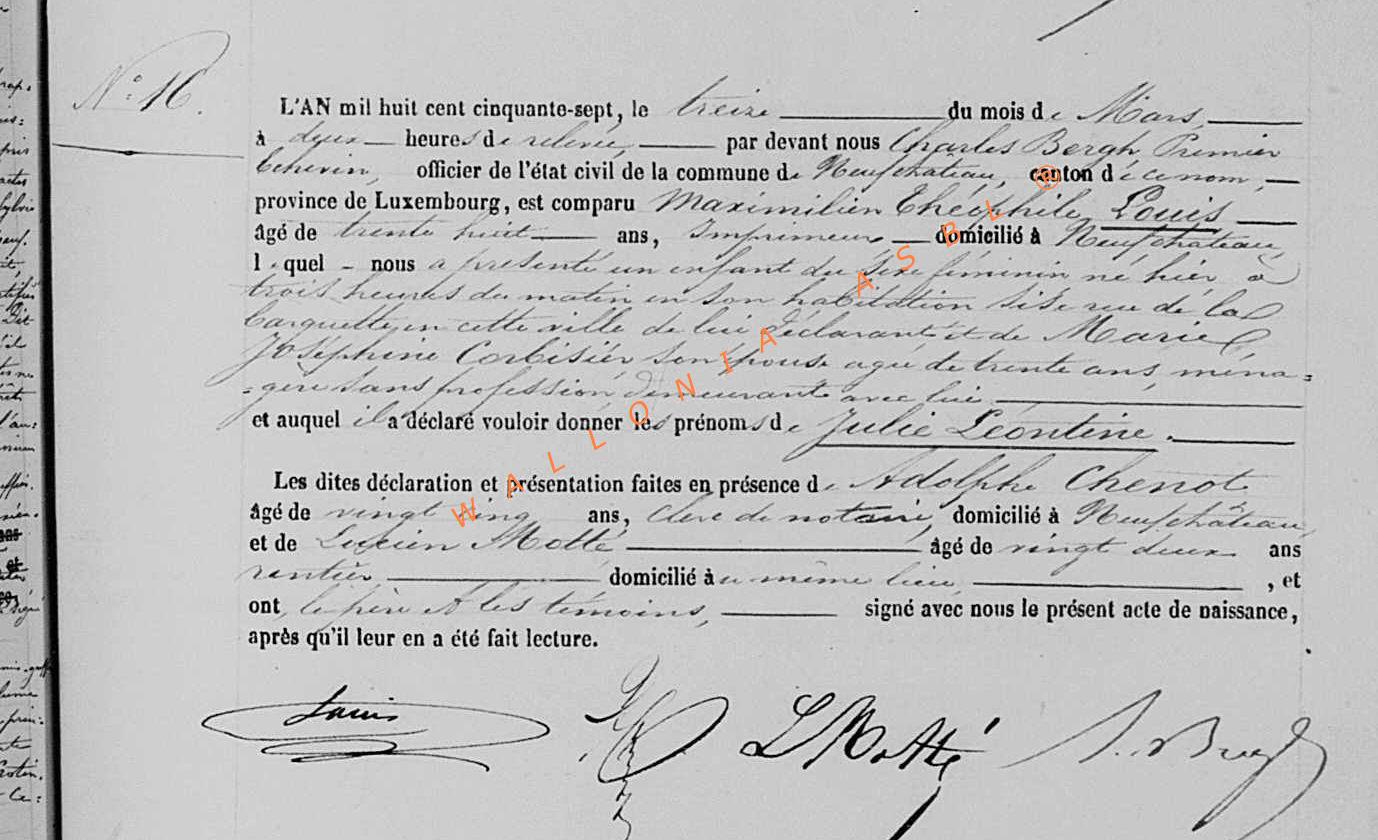 N° 16.
L'AN mil huit cent cinquante-sept, le treize du mois de Mars,
à deux heures de relevée, par devant nous Charles Bergh Premier
Echevin, officier de l'état civil de la commune de Neufchâteau, canton de ce nom,
province de Luxembourg, est comparu Maximilien Théophile Louis
âgé de trente huit ans, Imprimeur, domicilié à Neufchâteau,
lequel nous a présenté un enfant du sexe féminin né hier à
trois heures du matin en son habitation sise rue de la
Barquette, en cette ville de lui déclarant et de Marie
Joséphine Corbisier son épouse agée de trente ans, ména=
=gère sans profession demeurant avec lui
et auquel il a déclaré vouloir donner les prénoms de Julie Léontine.
Les dites déclaration et présentation faites en présence de Adolphe Chenot
âgé de vingt cinq ans, clerc de notaire, domicilié à Neufchâteau,
et de Lucien Motté âgé de vingt deux ans
rentier, domicilié au même lieu, et
ont, le père et les témoins, signé avec nous le présent acte de naissance,
après qu'il leur en a été fait lecture.
Louis
L Motté
WALLONIA ASBL ®